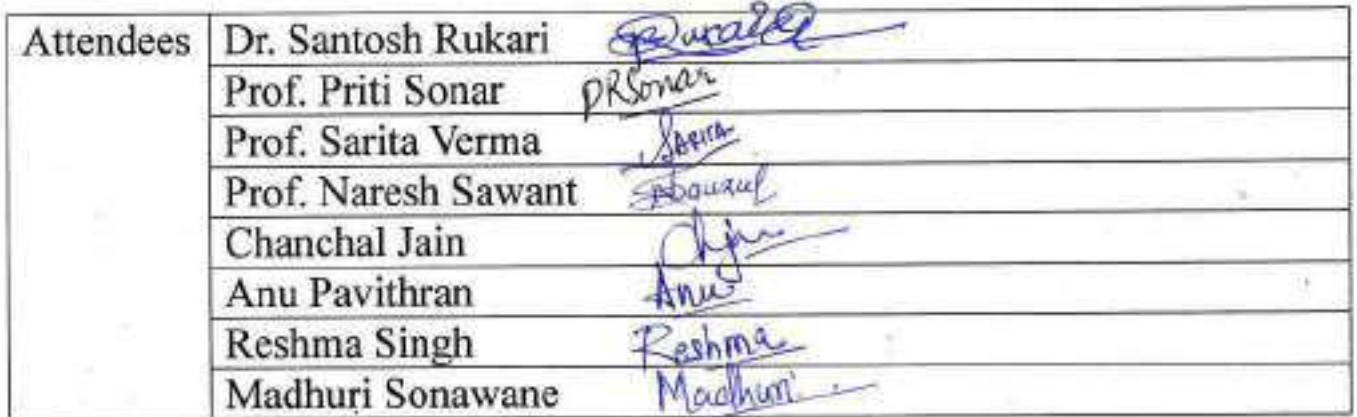 Attendees Dr. Santosh Rukari
Prof. Priti Sonar PRSonar
Prof. Sarita Verma SARITA
Prof. Naresh Sawant
Chanchal Jain
Anu Pavithran Anu
Reshma Singh Reshma
Madhuri Sonawane Madhuri